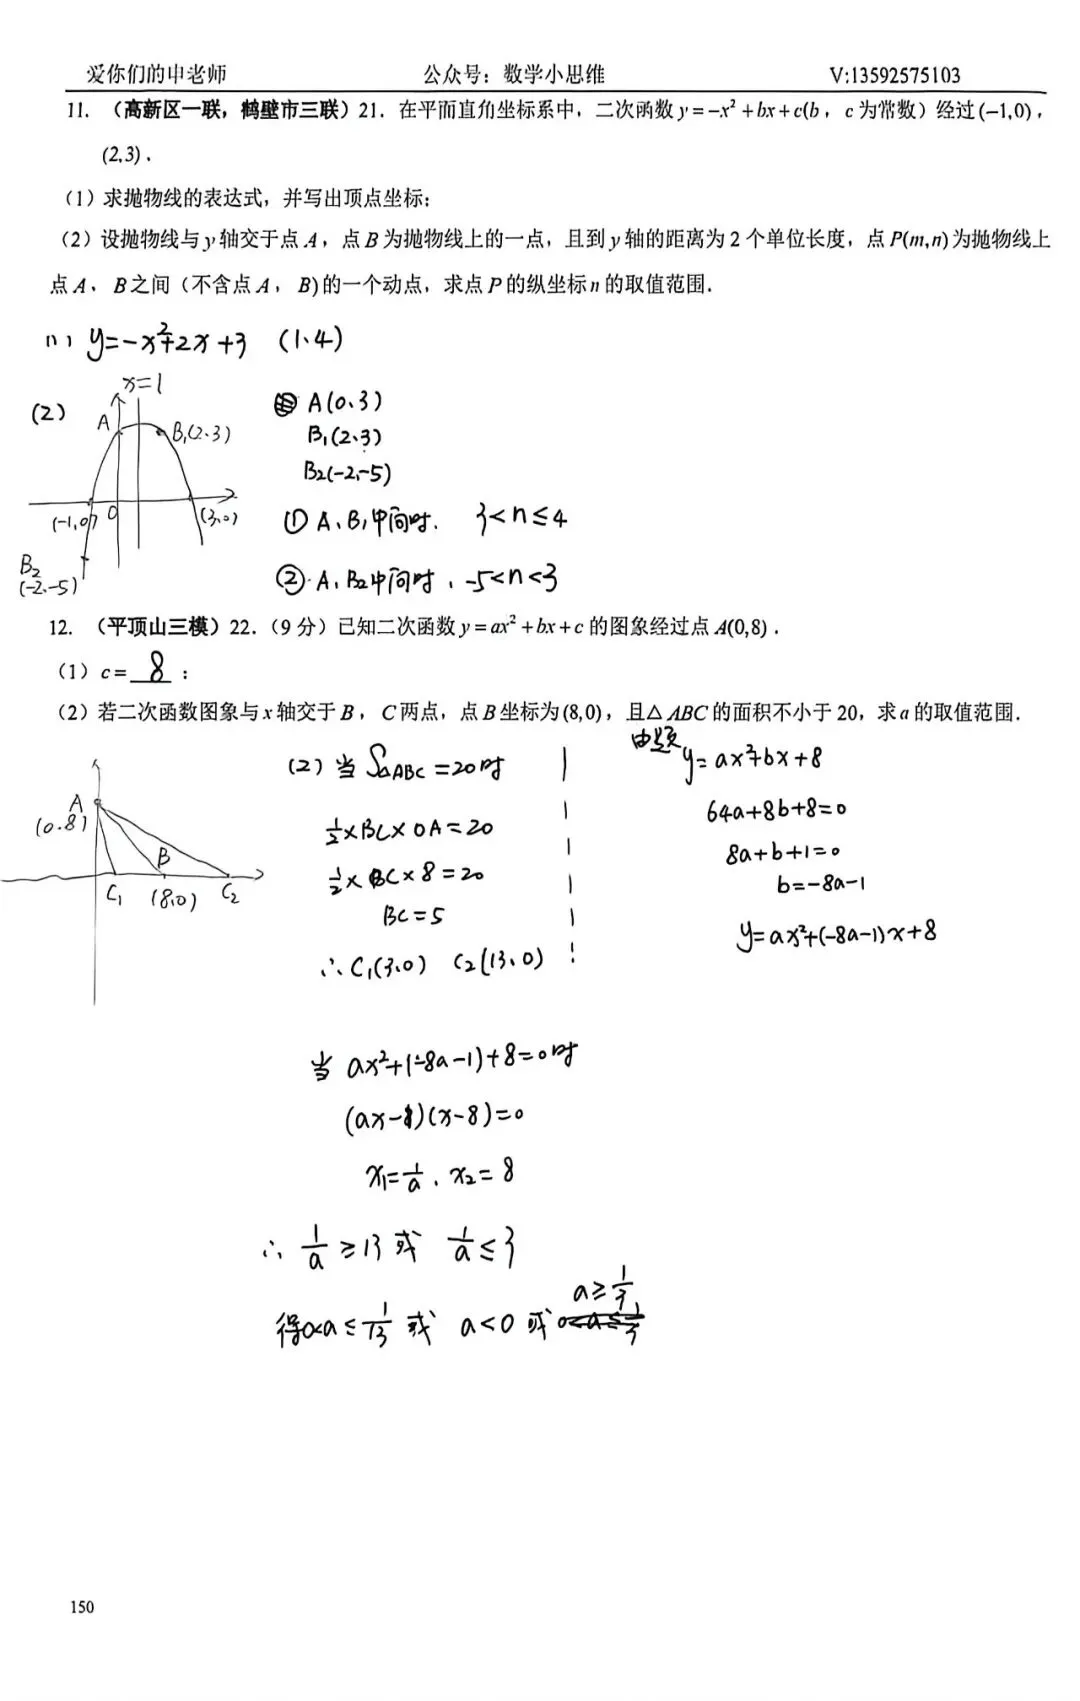 爱你们的申老师 公众号：数学小思维 V:13592575103
11. （高新区一联，鹤壁市三联）21. 在平面直角坐标系中，二次函数 y=-x²+bx+c(b，c 为常数）经过(-1,0)，
(2,3).
（1）求抛物线的表达式，并写出顶点坐标；
（2）设抛物线与 y 轴交于点 A，点 B 为抛物线上的一点，且到 y 轴的距离为 2 个单位长度，点 P(m,n)为抛物线上
点 A、B 之间（不含点 A，B)的一个动点，求点 P 的纵坐标 n 的取值范围.
(1) y=-x²+2x+3 (1、4)
(2)
x=1
A
B₁(2、3)
(-1,0)
0
(3,0)
B₂
(-2、-5)
A(0、3)
B₁(2、3)
B₂(-2,-5)
① A、B₁中间时. 3<n≤4
②·A、B₂中间时，-5<n<3
12. （平顶山三模）22.（9 分）已知二次函数 y=ax²+bx+c 的图象经过点 A(0,8).
（1）c= 8 ；
（2）若二次函数图象与 x 轴交于 B，C 两点，点 B 坐标为(8,0)，且△ABC 的面积不小于 20，求 a 的取值范围.
A
(0.8)
B
C₁
(8,0)
C₂
(2) 当 S△ABC =20时
½×BC×OA=20
½×BC×8=20
BC=5
∴C₁(3、0) C₂(13、0)
由题
y=ax²+bx+8
64a+8b+8=0
8a+b+1=0
b=-8a-1
y=ax²+(-8a-1)x+8
当 ax²+(-8a-1)+8=0时
(ax-1)(x-8)=0
x₁=1/a、x₂=8
∴ 1/a ≥13 或 1/a ≤3
得0<a≤1/13 或 a<0 或 a≥1/3
150